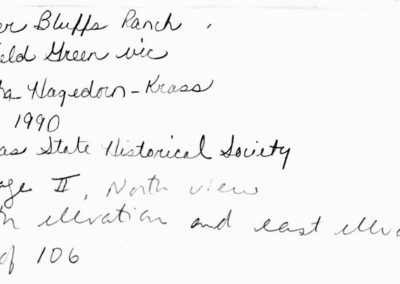 er Bluffs Ranch
eld Green vic
ha Hagedorn-Krass
1990
as State Historical Society
age II, North view
h elevation and east eleva
of 106